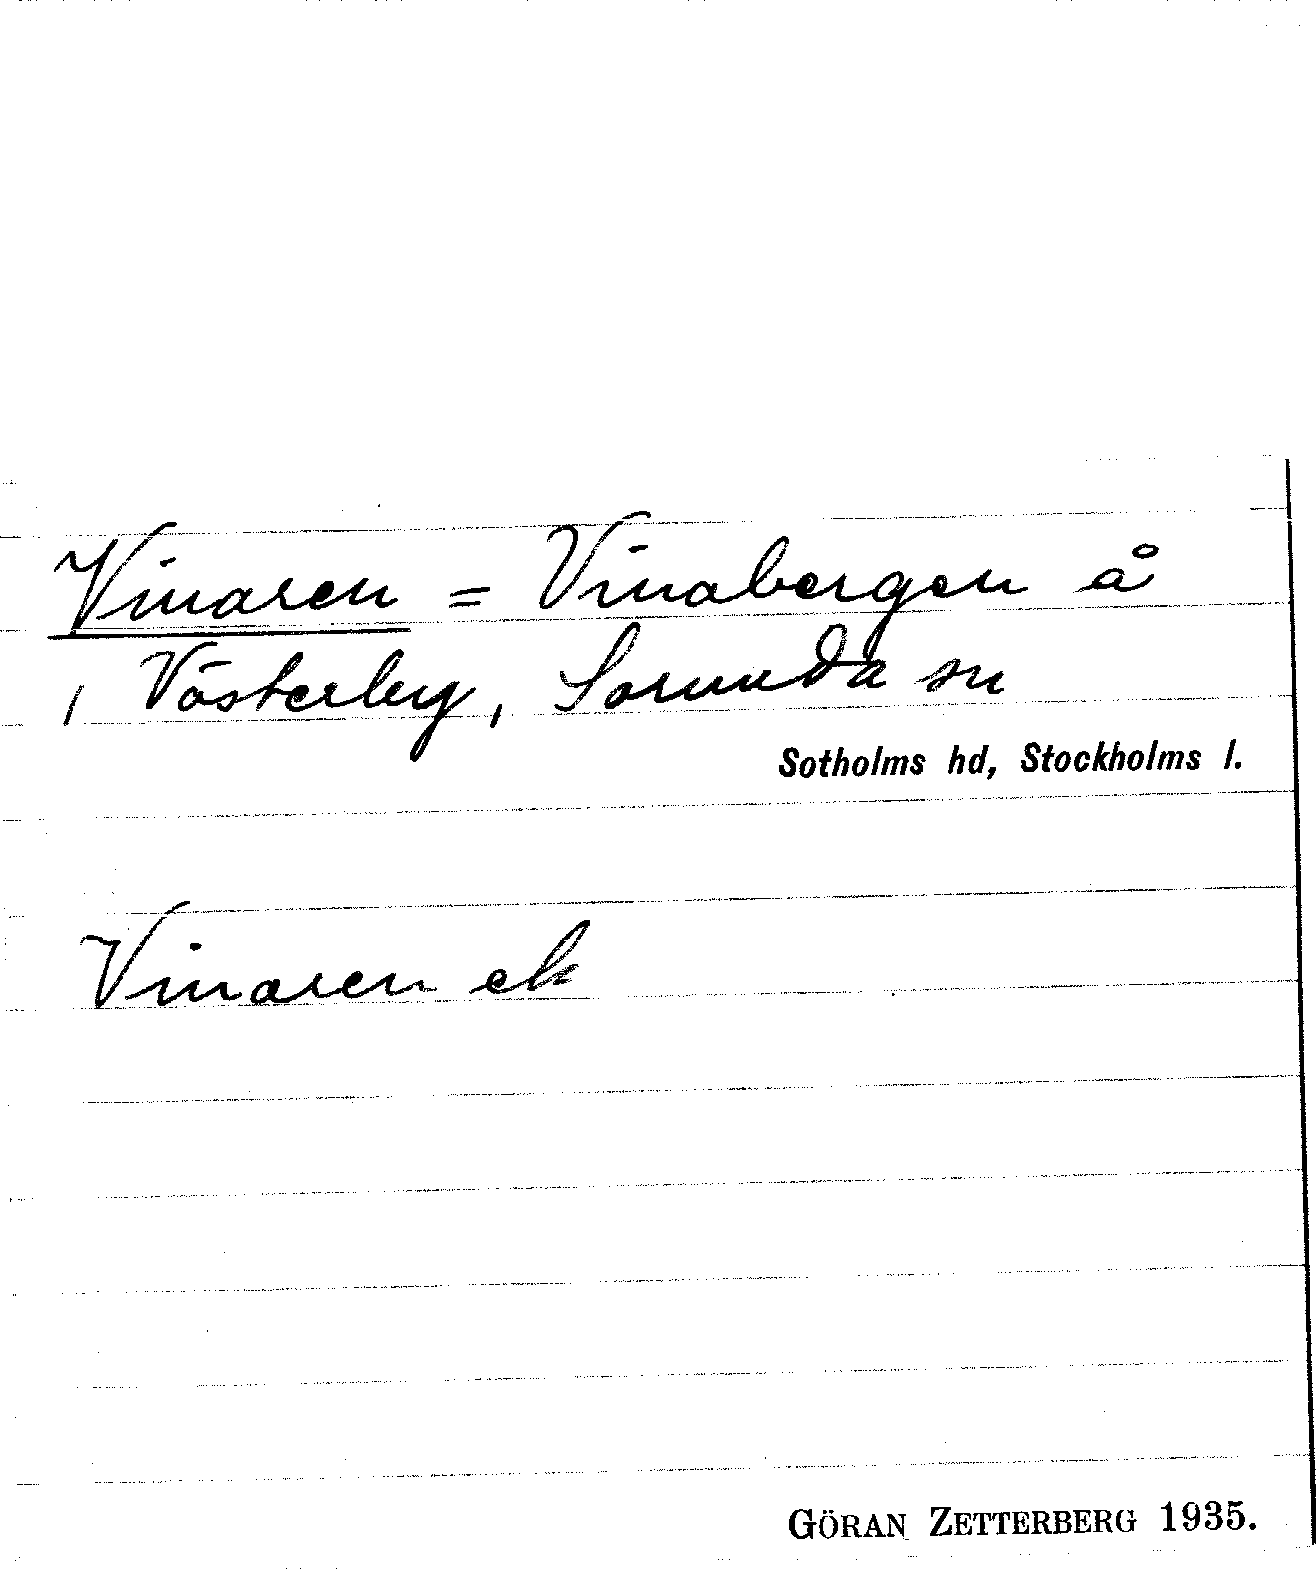 Vinaren = Vinabergen å
i Västerby, Sorunda sn
Sotholms hd, Stockholms l.
Vinaren ek
GÖRAN ZETTERBERG 1935.